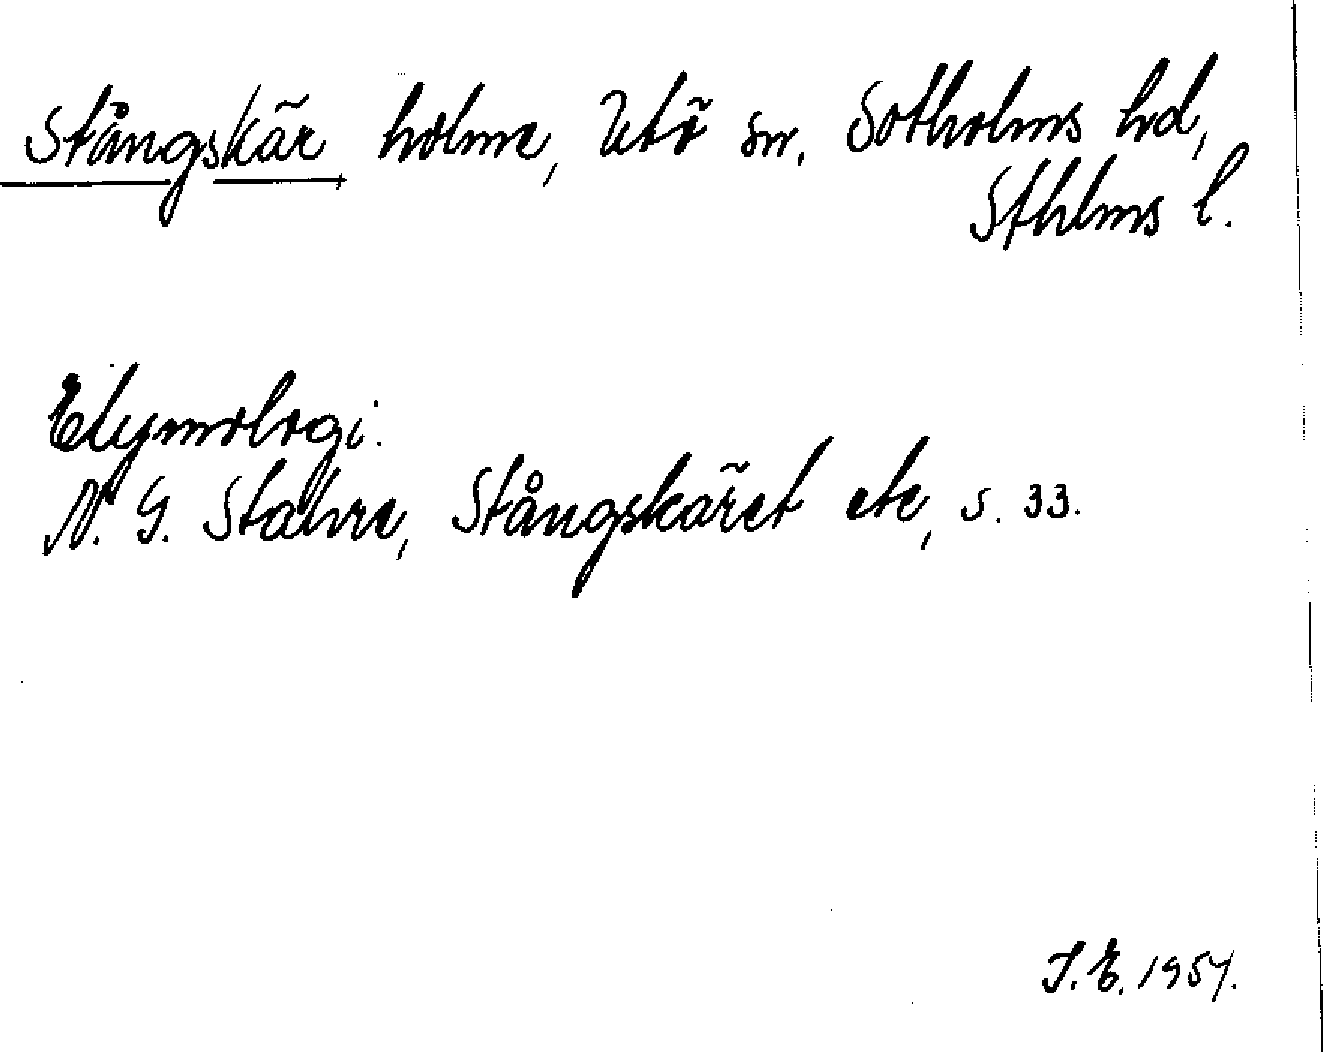 Stångskär holme, Utö sn. Sotholms hd,
Sthlms l.
Etymologi.
N. G. Stahre, Stångskäret etc, s. 33.
I. E. 1957.